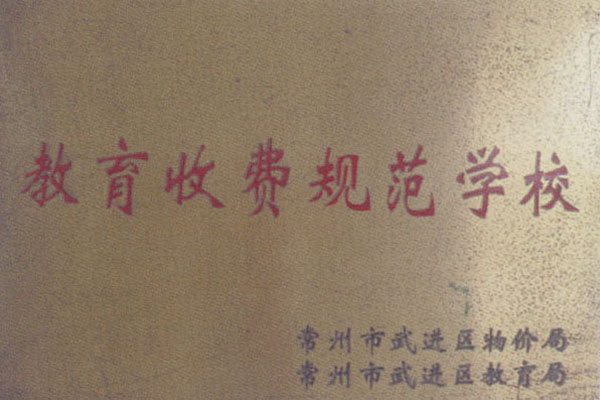 教育收费规范学校
常州市武进区物价局
常州市武进区教育局